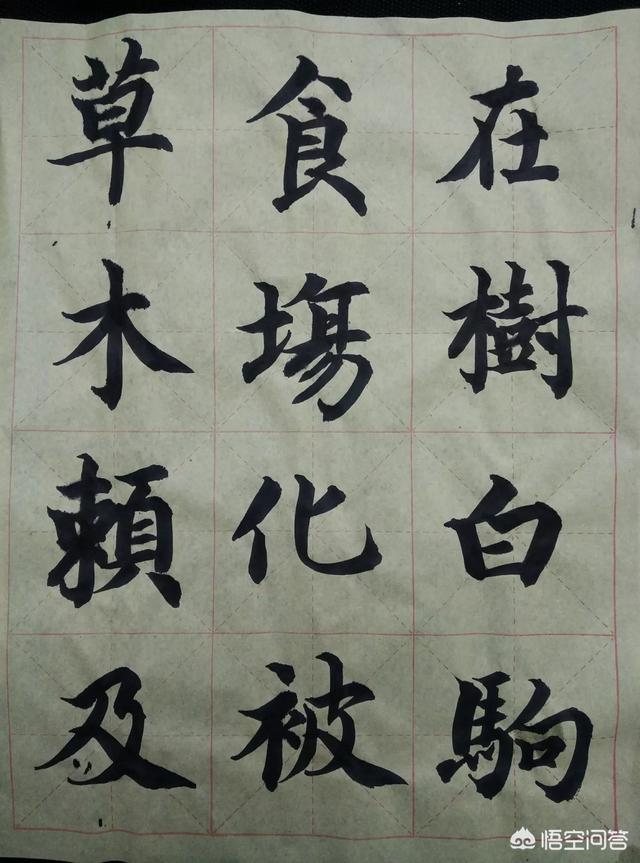 在樹白駒
食塲化被
草木頼及
悟空问答